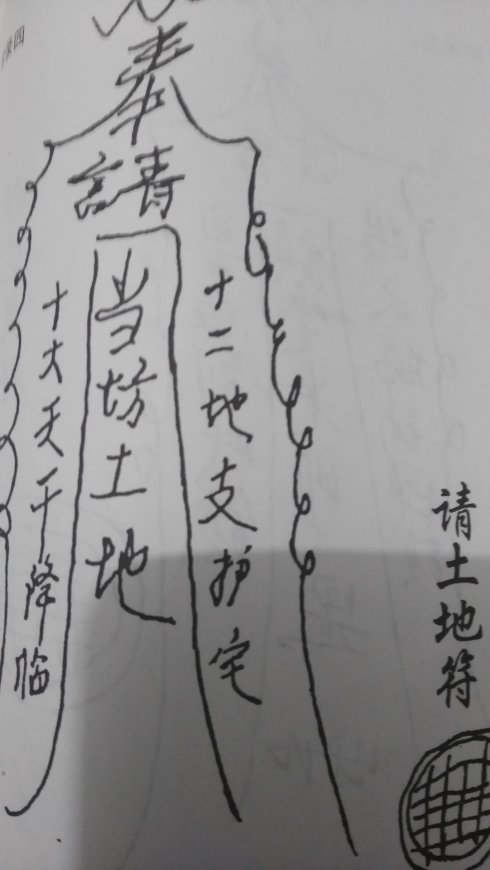 奉
請
当坊土地
十二地支护宅
十大天干降临
请土地符